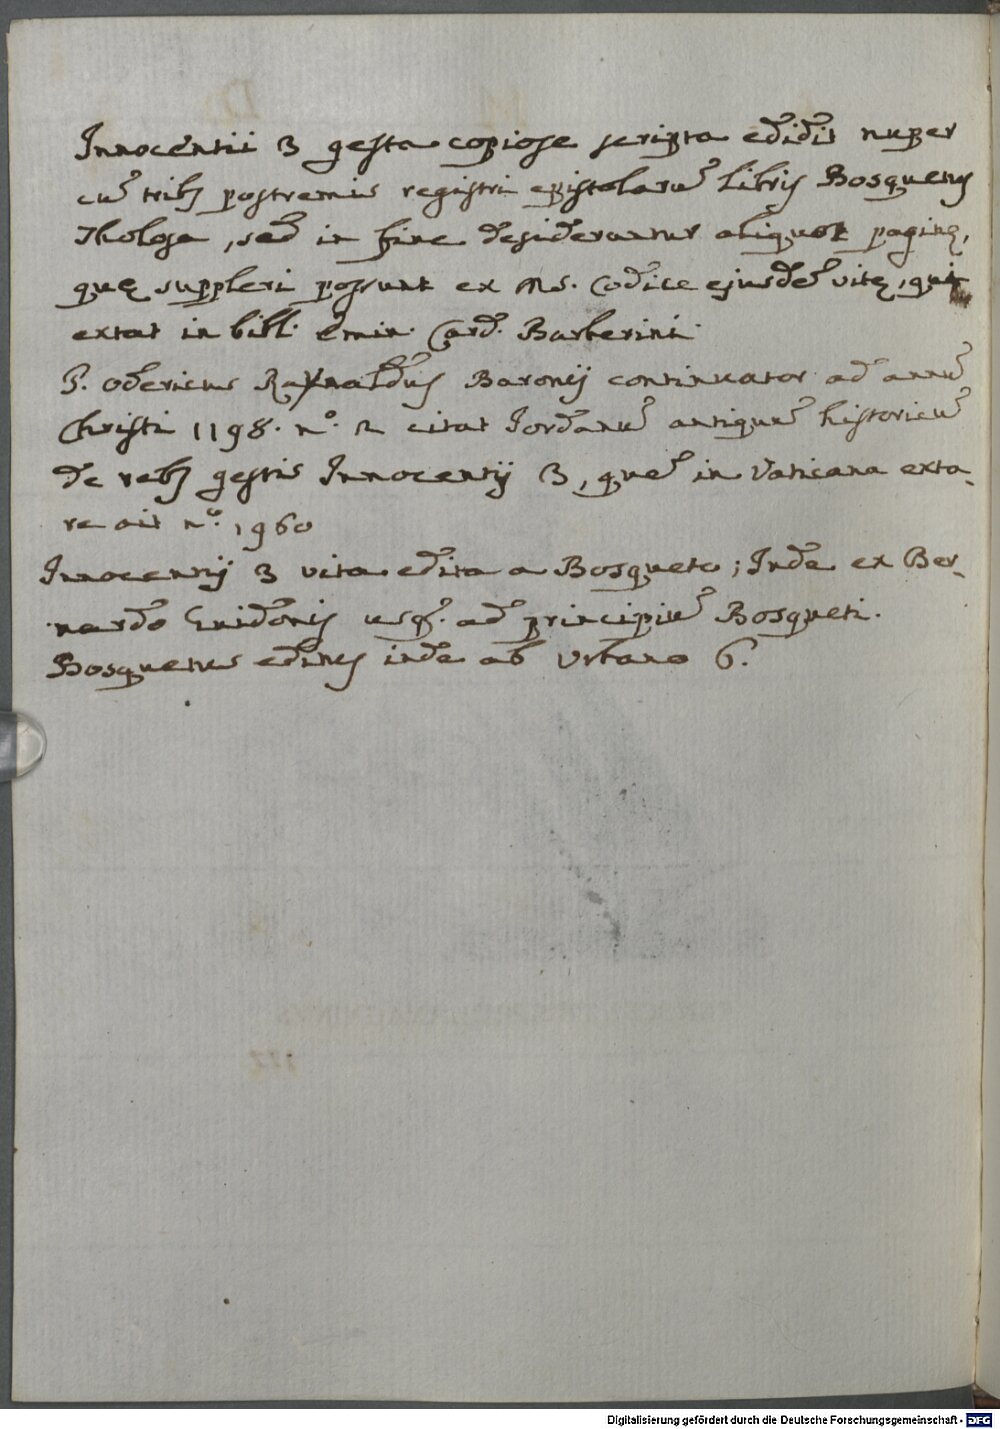 Innocentii 3 gesta copiose scripta edidit nuper
cũ trib9 postremis registri epistolarũ libris Bosquetus
Tholosæ, sed in fine desiderantur aliquot paginę,
quę suppleri possunt ex Ms. Codice ejusdẽ vitę, qui
extat in bibl. Emin. Card. Barberini
P. Odericus Raynaldus Baronij continuator ad annũ
Christi 1198. n.º 2 citat Jordanũ antiquũ historicũ
de reb9 gestis Innocentij 3, quẽ in Vaticana exta-
re ait n.º 1960
Innocentij 3 vita edita a Bosqueto; Inde ex Ber-
nardo Guidonis usq. ad principiũ Bosqueti.
Bosquetus editus inde ab Urbano 6.
Digitalisierung gefördert durch die Deutsche Forschungsgemeinschaft - DFG